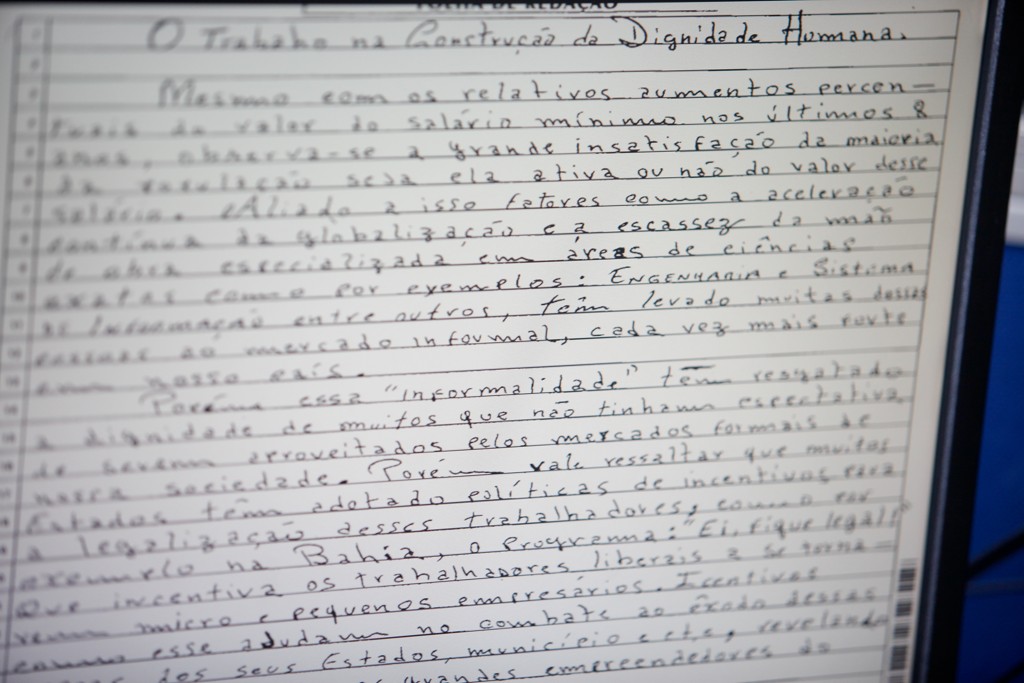 FOLHA DE REDAÇÃO
O Trabalho na Construção da Dignidade Humana.
Mesmo com os relativos aumentos percen-
tuais do valor do salário mínimo nos últimos 8
anos, observa-se a grande insatisfação da maioria
da população seja ela ativa ou não do valor desse
salário. Aliado a isso fatores como a aceleração
contínua da globalização e a escassez da mão
de obra especializada em áreas de ciências
exatas como por exemplos: ENGENHARIA e Sistema
de Informação entre outros, têm levado muitas dessas
pessoas ao mercado informal, cada vez mais forte
em nosso país.
Porém essa "informalidade" têm resgatado
a dignidade de muitos que não tinham espectativa
de serem aproveitados pelos mercados formais de
nossa sociedade. Porém vale ressaltar que muitos
Estados têm adotado políticas de incentivos para
a legalização desses trabalhadores, como por
exemplo na Bahia, o Programa: "Ei, fique legal!"
Que incentiva os trabalhadores liberais a se torna-
rem micro e pequenos empresários. Icentivos
como esse ajudam no combate ao êxodo dessas
dos seus Estados, município e etc, revelando
grandes empreendedores do